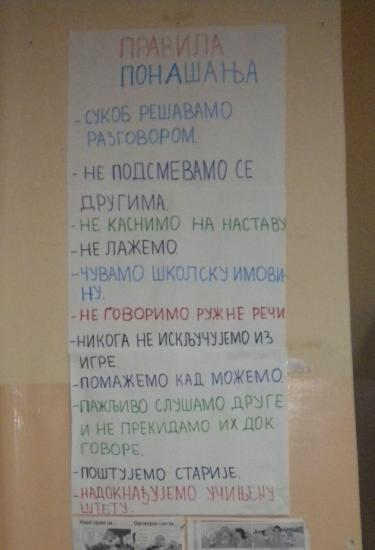 ПРАВИЛА
ПОНАШАЊА
-СУКОБ РЕШАВАМО
РАЗГОВОРОМ.
-НЕ ПОДСМЕВАМО СЕ
ДРУГИМА.
-НЕ КАСНИМО НА НАСТАВУ
-НЕ ЛАЖЕМО.
-ЧУВАМО ШКОЛСКУ ИМОВИ-
НУ.
-НЕ ГОВОРИМО РУЖНЕ РЕЧИ
-НИКОГА НЕ ИСКЉУЧУЈЕМО ИЗ
ИГРЕ.
-ПОМАЖЕМО КАД МОЖЕМО.
-ПАЖЉИВО СЛУШАМО ДРУГЕ
И НЕ ПРЕКИДАМО ИХ ДОК
ГОВОРЕ.
-ПОШТУЈЕМО СТАРИЈЕ.
-НАДОКНАЂУЈЕМО УЧИЊЕНУ
ШТЕТУ.